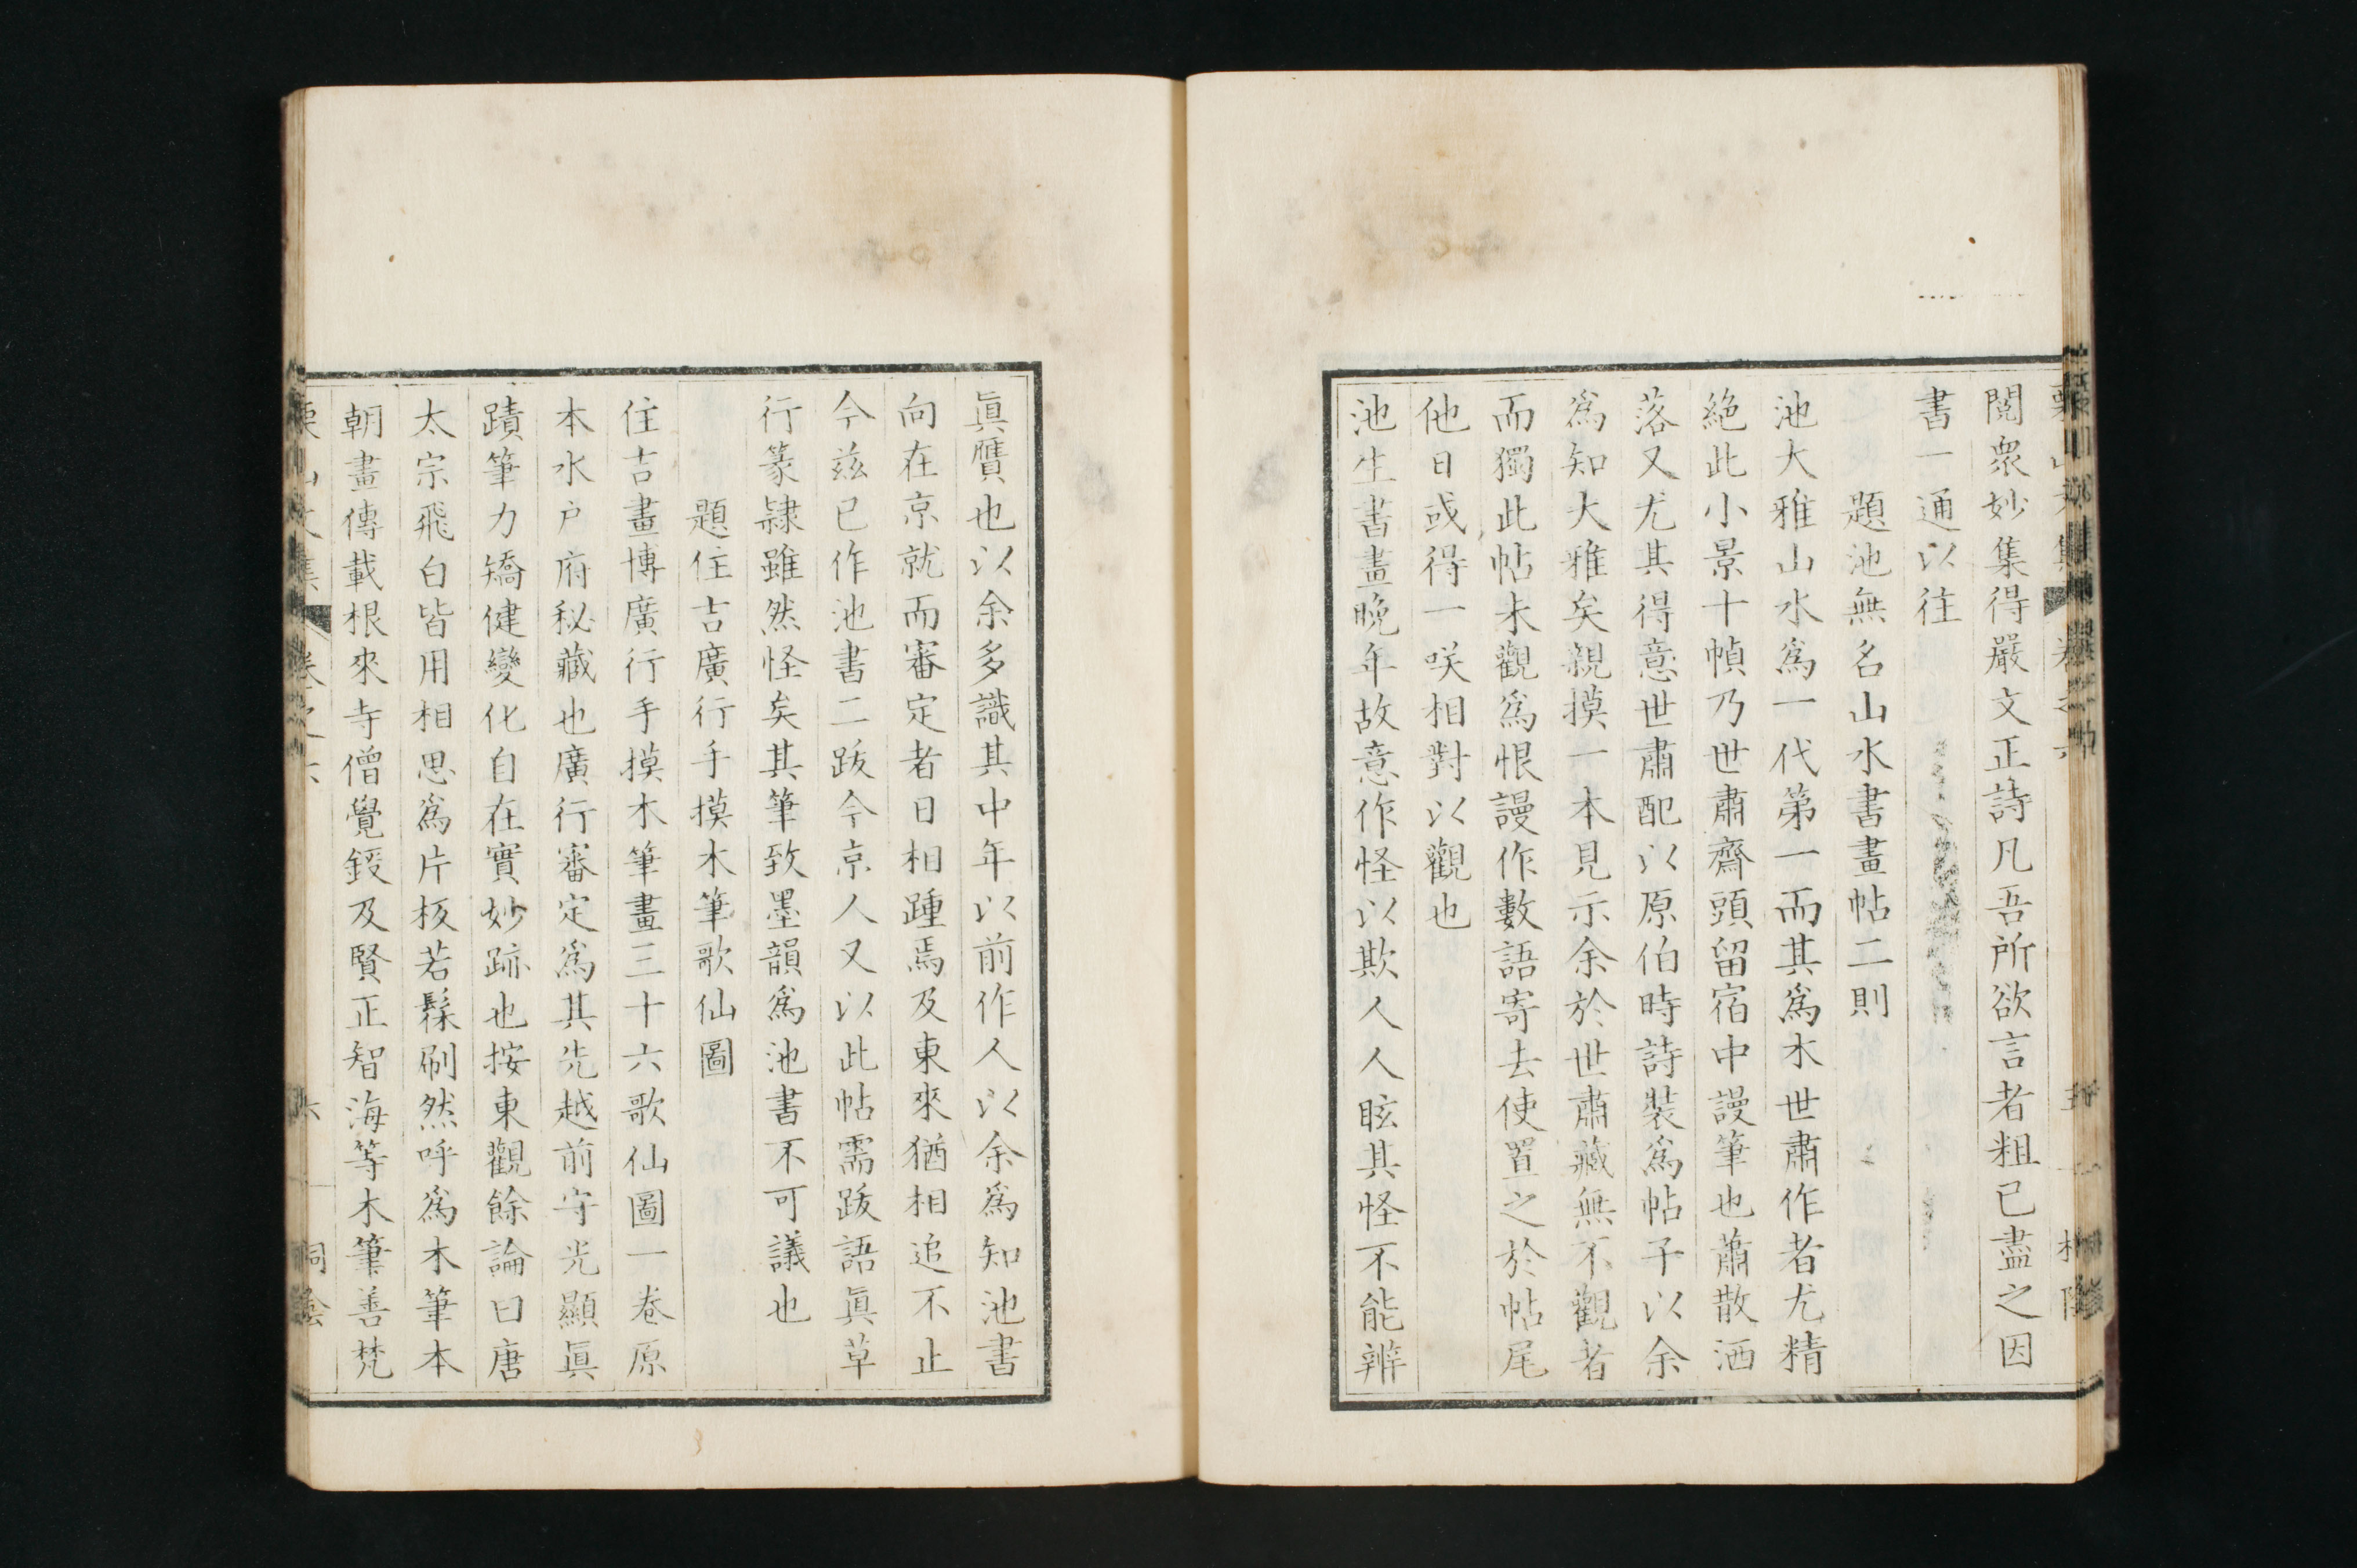 閱衆妙集得嚴文正詩凡吾所欲言者粗已盡之因
書一通以往
題池無名山水書畫帖二則
池大雅山水爲一代第一而其爲木世肅作者尤精
絶此小景十幀乃世肅齋頭留宿中謾筆也蕭散洒
落又尤其得意世肅配以原伯時詩裝爲帖子以余
爲知大雅矣親摸一本見示余於世肅藏無不觀者
而獨此帖未觀爲恨謾作數語寄去使置之於帖尾
他日或得一咲相對以觀也
池生書畫晩年故意作怪以欺人人眩其怪不能辨
眞贋也以余多識其中年以前作人以余爲知池書
向在京就而審定者日相踵焉及東來猶相追不止
今茲已作池書二跋今京人又以此帖需跋語眞草
行篆隷雖然怪矣其筆致墨韻爲池書不可議也
題住吉廣行手摸木筆歌仙圖
住吉畫博廣行手摸木筆畫三十六歌仙圖一卷原
本水戸府秘藏也廣行審定爲其先越前守光顯眞
蹟筆力矯健變化自在實妙跡也按東觀餘論曰唐
太宗飛白皆用相思爲片板若髹刷然呼爲木筆本
朝畫傳載根來寺僧覺鍐及賢正智海等木筆善梵
栗山文集 卷之六 六